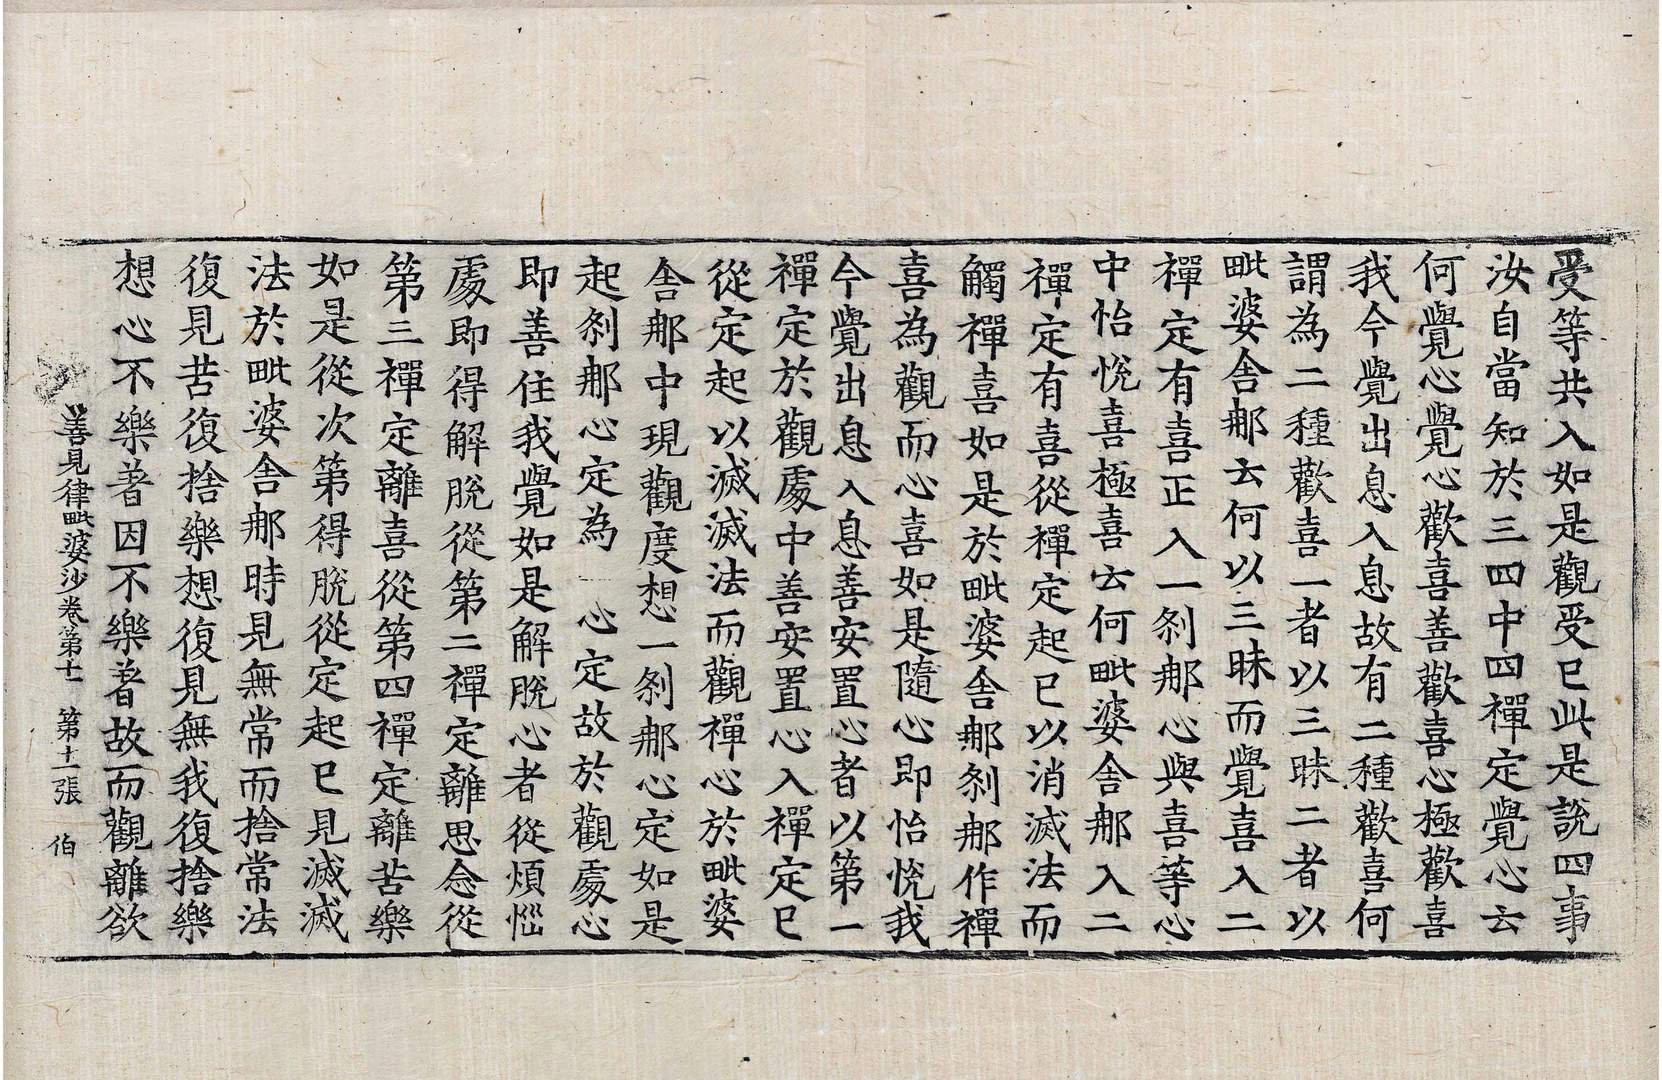 受等共入如是觀受已此是說四事
汝自當知於三四中四禪定覺心云
何覺心覺心歡喜善歡喜心極歡喜
我今覺出息入息故有二種歡喜何
謂為二種歡喜一者以三昧二者以
毗婆舍那云何以三昧而覺喜入二
禪定有喜正入一剎那心與喜等心
中怡悅喜極喜云何毗婆舍那入二
禪定有喜從禪定起已以消滅法而
觸禪喜如是於毗婆舍那剎那作禪
喜為觀而心喜如是隨心即怡悅我
今覺出息入息善安置心者以第一
禪定於觀處中善安置心入禪定已
從定起以滅滅法而觀禪心於毗婆
舍那中現觀度想一剎那心定如是
起剎那心定為 心定故於觀處心
即善住我覺如是解脫心者從煩惱
處即得解脫從第二禪定離思念從
第三禪定離喜從第四禪定離苦樂
如是從次第得脫從定起已見滅滅
法於毗婆舍那時見無常而捨常法
復見苦復捨樂想復見無我復捨樂
想心不樂著因不樂著故而觀離欲
善見律毗婆沙卷第十一 第十一張 伯